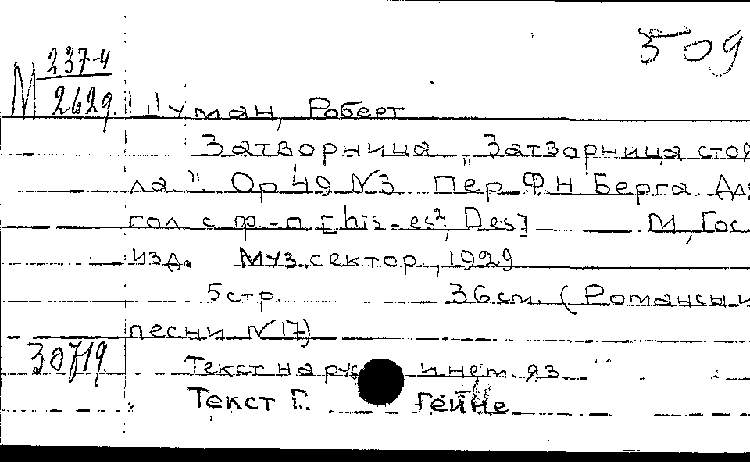 509
М 237-4
2629
Шуман, Роберт
Затворница "Затворница стоя
ла". Ор 49 N3 Пер Ф.Н Берга Для
гол с ф-п [his-es², Des] М, Гос
изд. Муз.сектор, 1929
5стр. 36см. (Романсы и
песни N17)
30719
Текст на и нем. яз
Текст Г. Гейне